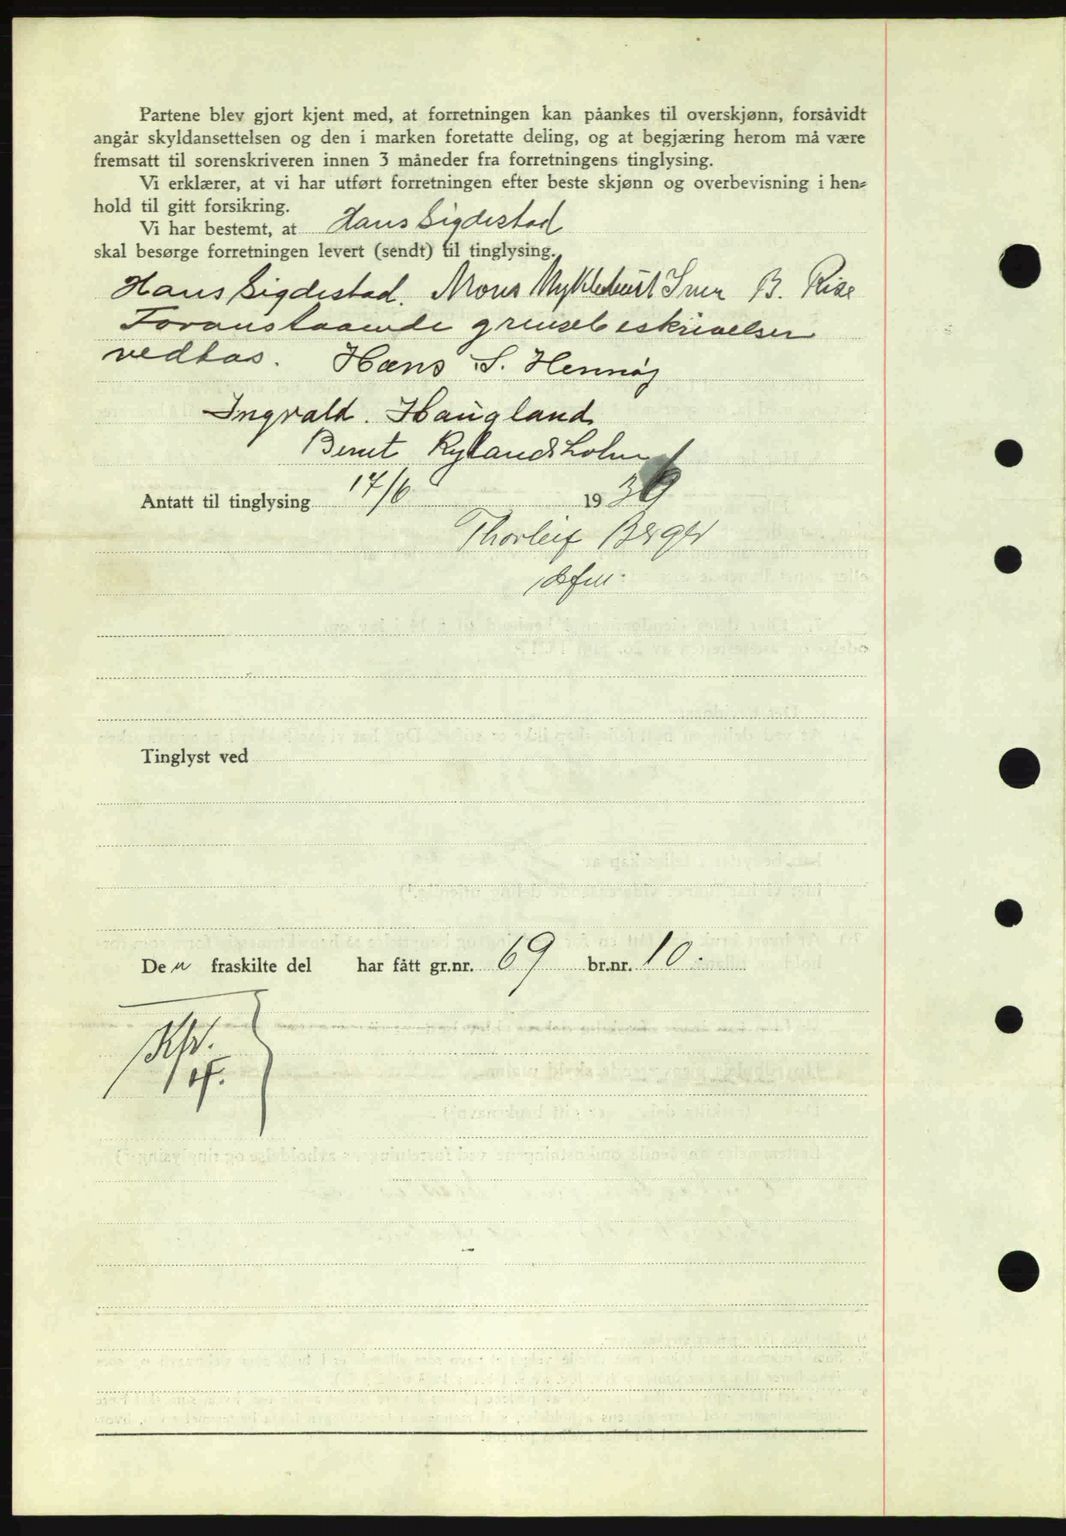 Partene blev gjort kjent med, at forretningen kan påankes til overskjønn, forsåvidt
angår skyldansettelsen og den i marken foretatte deling, og at begjæring herom må være
fremsatt til sorenskriveren innen 3 måneder fra forretningens tinglysing.
Vi erklærer, at vi har utført forretningen efter beste skjønn og overbevisning i hen-
hold til gitt forsikring.
Vi har bestemt, at Hans Sigdestad
skal besørge forretningen levert (sendt) til tinglysing.
Hans Sigdestad. Mons Myklebust Iver B. Rise
Foranstaaende grensebeskrivelser
vedtas. Hans S. Hennøy
Ingvald. Haugland
Bernt Rylandsholm
Antatt til tinglysing 17/6 1939
Thorleif Berger
Tinglyst ved
Den fraskilte del har fått gr.nr. 69 br.nr. 10.